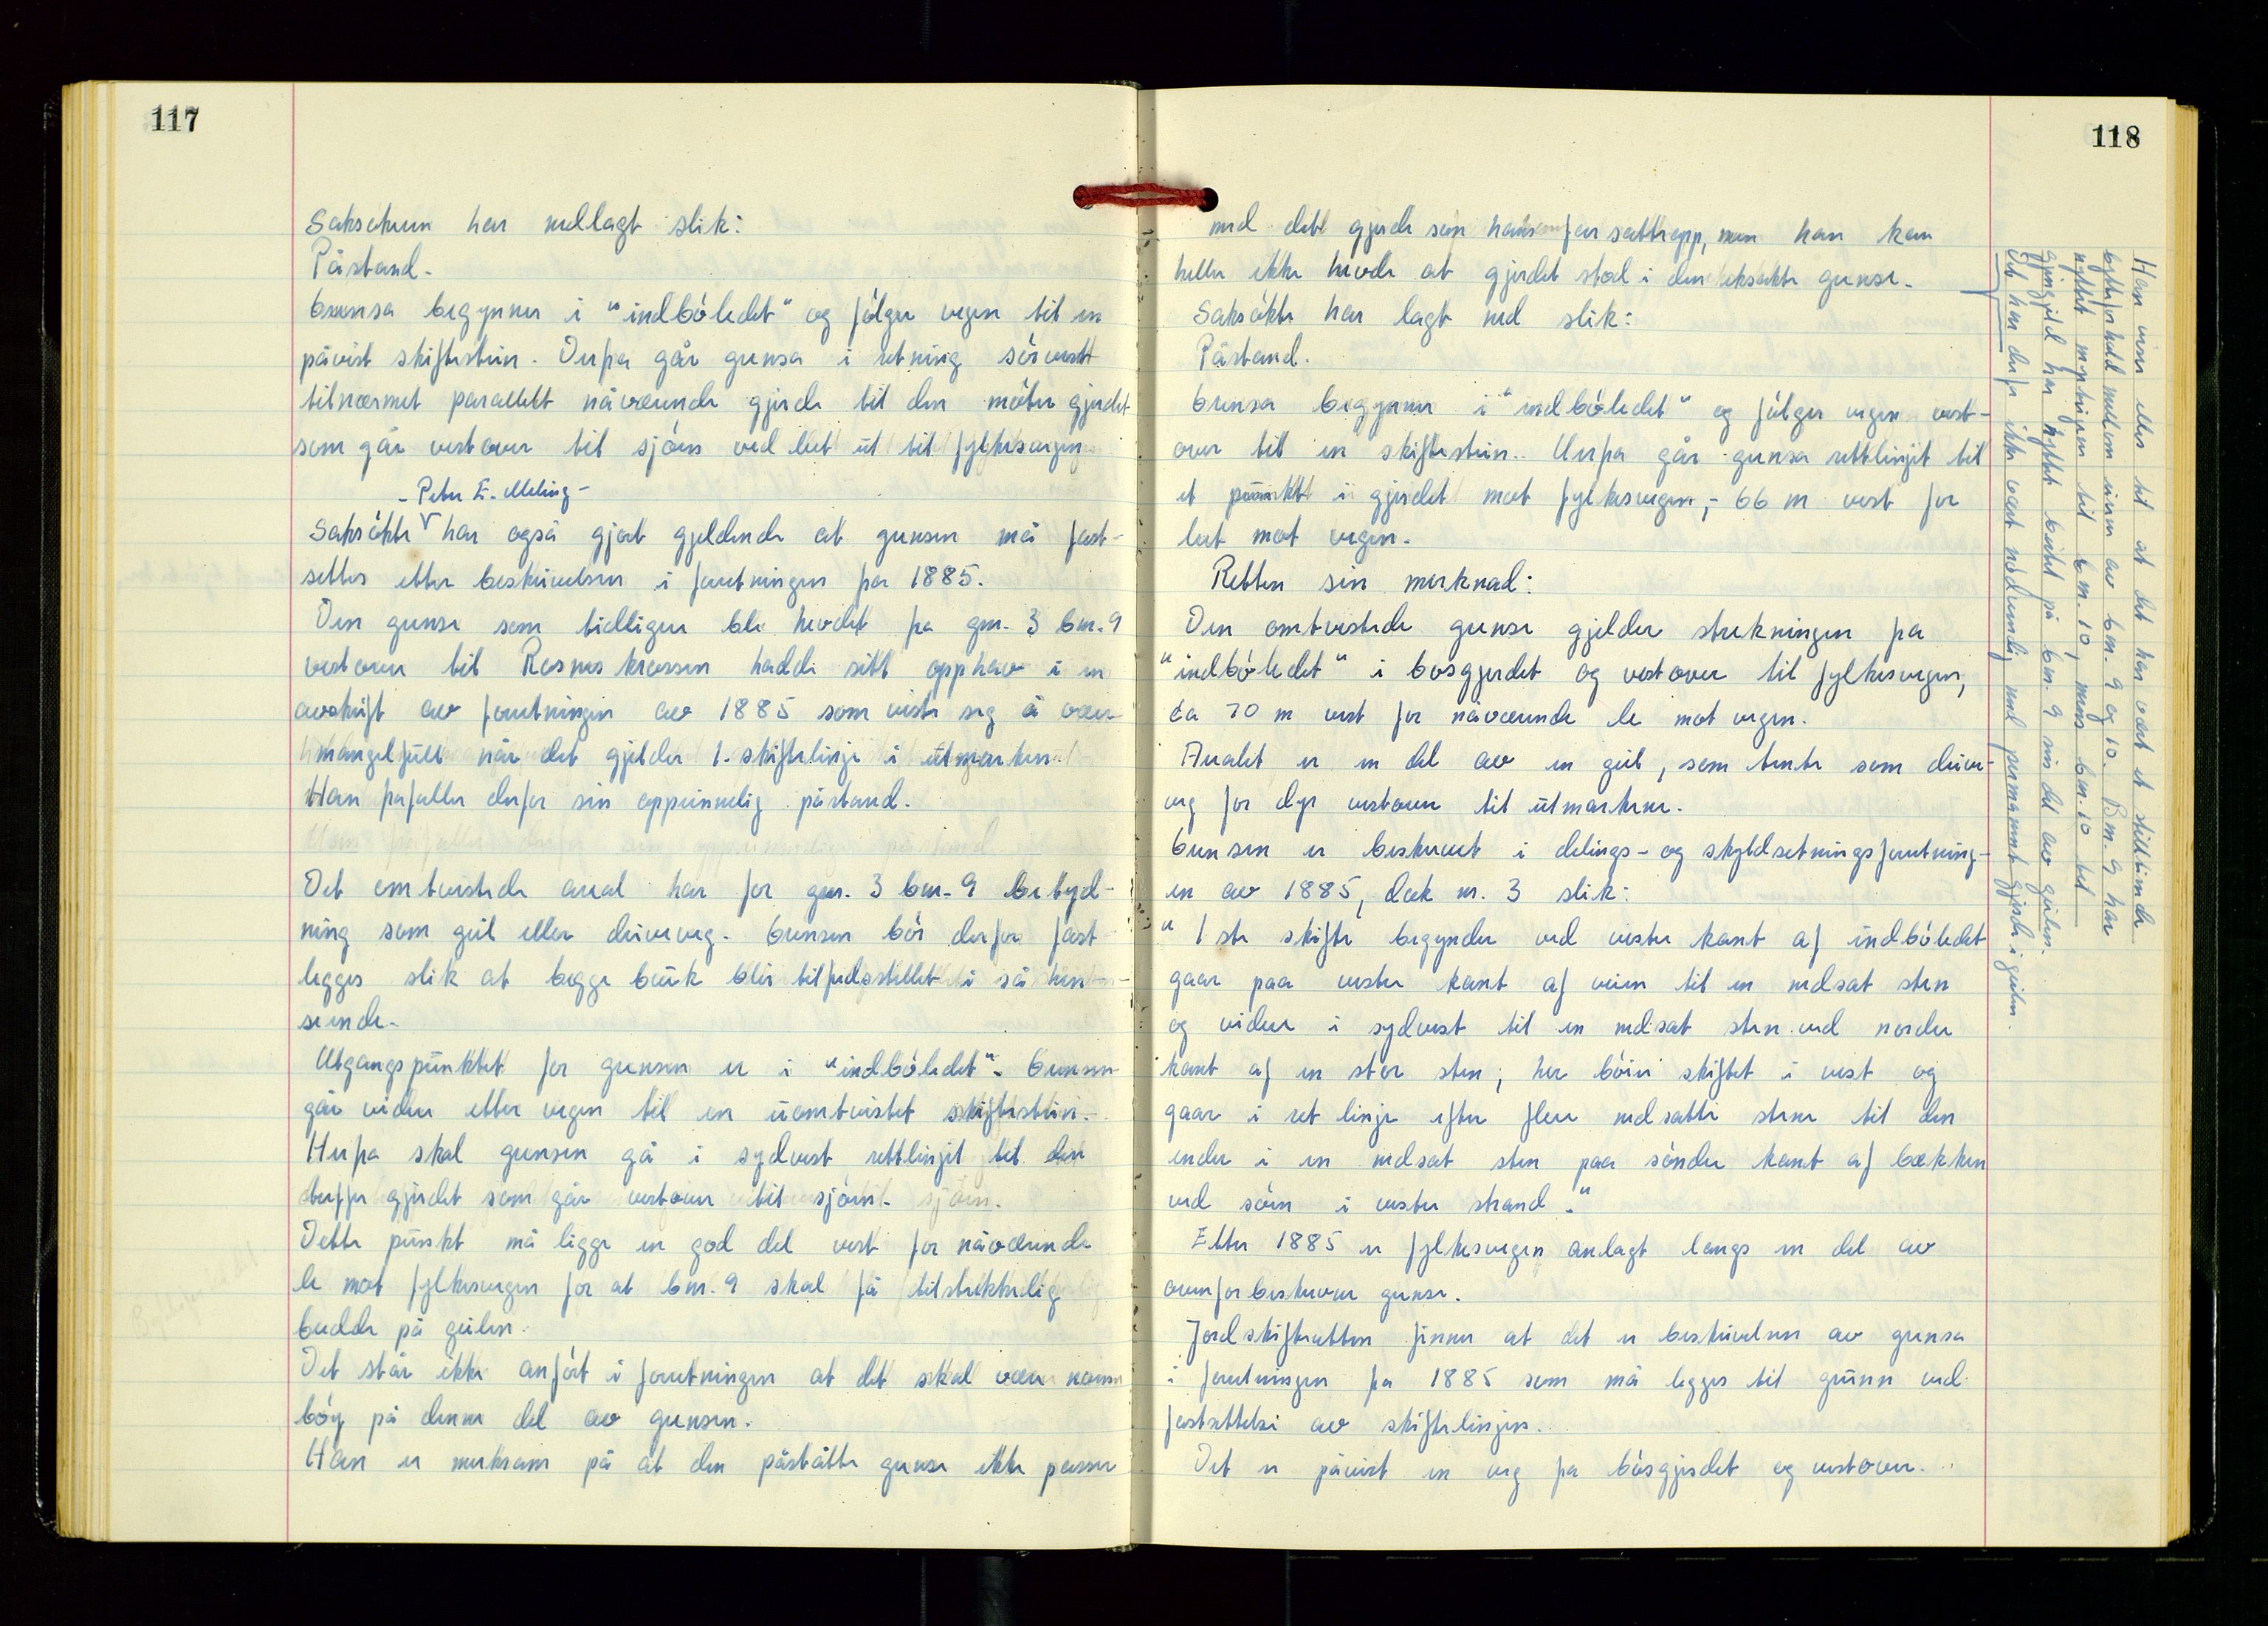 117
Saksøkeren har nedlagt slik:
Påstand.
Grensa begynner i "indböledet" og fölger vegen til en
påvist skiftestein. Derfra går grensa i retning sörvest
tilnærmet parallelt nåværende gjerde til den möter gjerdet
som går vestover til sjöen ved leet ut til fylkesvegen.
- Peter E. Meling -
Saksökte har også gjort gjeldende at grensen må fast-
settes etter beskrivelsen i forretningen fra 1885.
Den grense som tidligere ble hevdet fra gnr. 3 bnr. 9
vestover til Rosneskrossen hadde sitt opphav i en
avskrift av forretningen av 1885 som viste seg å være
mangelfull når det gjelder 1. skiftelinje i utmarken.
Han frafaller derfor sin opprinnelig påstand.
Det omtvistede areal har for gnr. 3 bnr. 9 betyd-
ning som geil eller driveveg. Grensen bör derfor fast
legges slik at begge bruk blir tilfredsstillet i så hen-
seende.
Utgangspunktet for grensen er i "indböledet". Grensen
går videre etter vegen til en uomtvistet skiftestein.
Herfra skal grensen gå i sydvest rettlinjet til den
treffer gjerdet som går vestover til sjöen.
Dette punkt må ligge en god del vest for nåværende
le mot fylkesvegen for at bnr. 9 skal få tilstrekkelig
bredde på geilen.
Det står ikke anfört i forretningen at det skal være noen
böy på denne del av grensen.
Han er merksam på at den påståtte grense ikke passer
118
med det gjerde som hans far satte opp, men han kan
heller ikke hevde at gjerdet stod i den eksakte grense.
Saksökte har lagt ned slik:
Påstand.
Grensa begynner i "indböledet" og fölger vegen vest-
over til en skiftestein. Herfra går grensa rettlinjet til
et punkt i gjerdet mot fylkesvegen, - 66 m vest for
leet mot vegen.
Retten sin merknad:
Den omtvistede grense gjelder strekningen fra
"indböledet" i bösgjerdet og vestover til fylkesvegen,
ca 70 m vest for nåværende le mot vegen.
Arealet er en del av en geil, som tente som drive-
veg for dyr vestover til utmarkene.
Grensen er beskrevet i delings- og skyldsetningsforretning-
en av 1885, dok nr. 3 slik:
" 1ste skifte begynder ved vestre kant af indböledet
gaar paa vestre kant af veien til en nedsat sten
og videre i sydvest til en nedsat sten ved nordre
kant af en stor sten; her böier skiftet i vest og
gaar i ret linje efter flere nedsatte stene til den
ender i en nedsat sten paa söndre kant af bækken
ved söen i vestre strand."
Etter 1885 er fylkesvegen anlagt langs en del av
ovenforbeskrevne grense.
Jordskifteretten finner at det er beskrivelsen av grensa
i forretningen fra 1885 som må legges til grunn ved
fastsettelse av skiftelinjen.
Det er påvist en veg fra bösgjerdet og vestover.
Han viser elles til at det har vært et stilltiende
bytteforhold mellom eierne av bnr. 9 og 10. Bnr. 9 har
nyttet bnr. 10, mens bnr. 10 til
gjengjeld har nyttet beitet på bnr. 9 sin del av geilen.
Det har derfor ikke vært nödvendig med permanent gjerde i geilen.